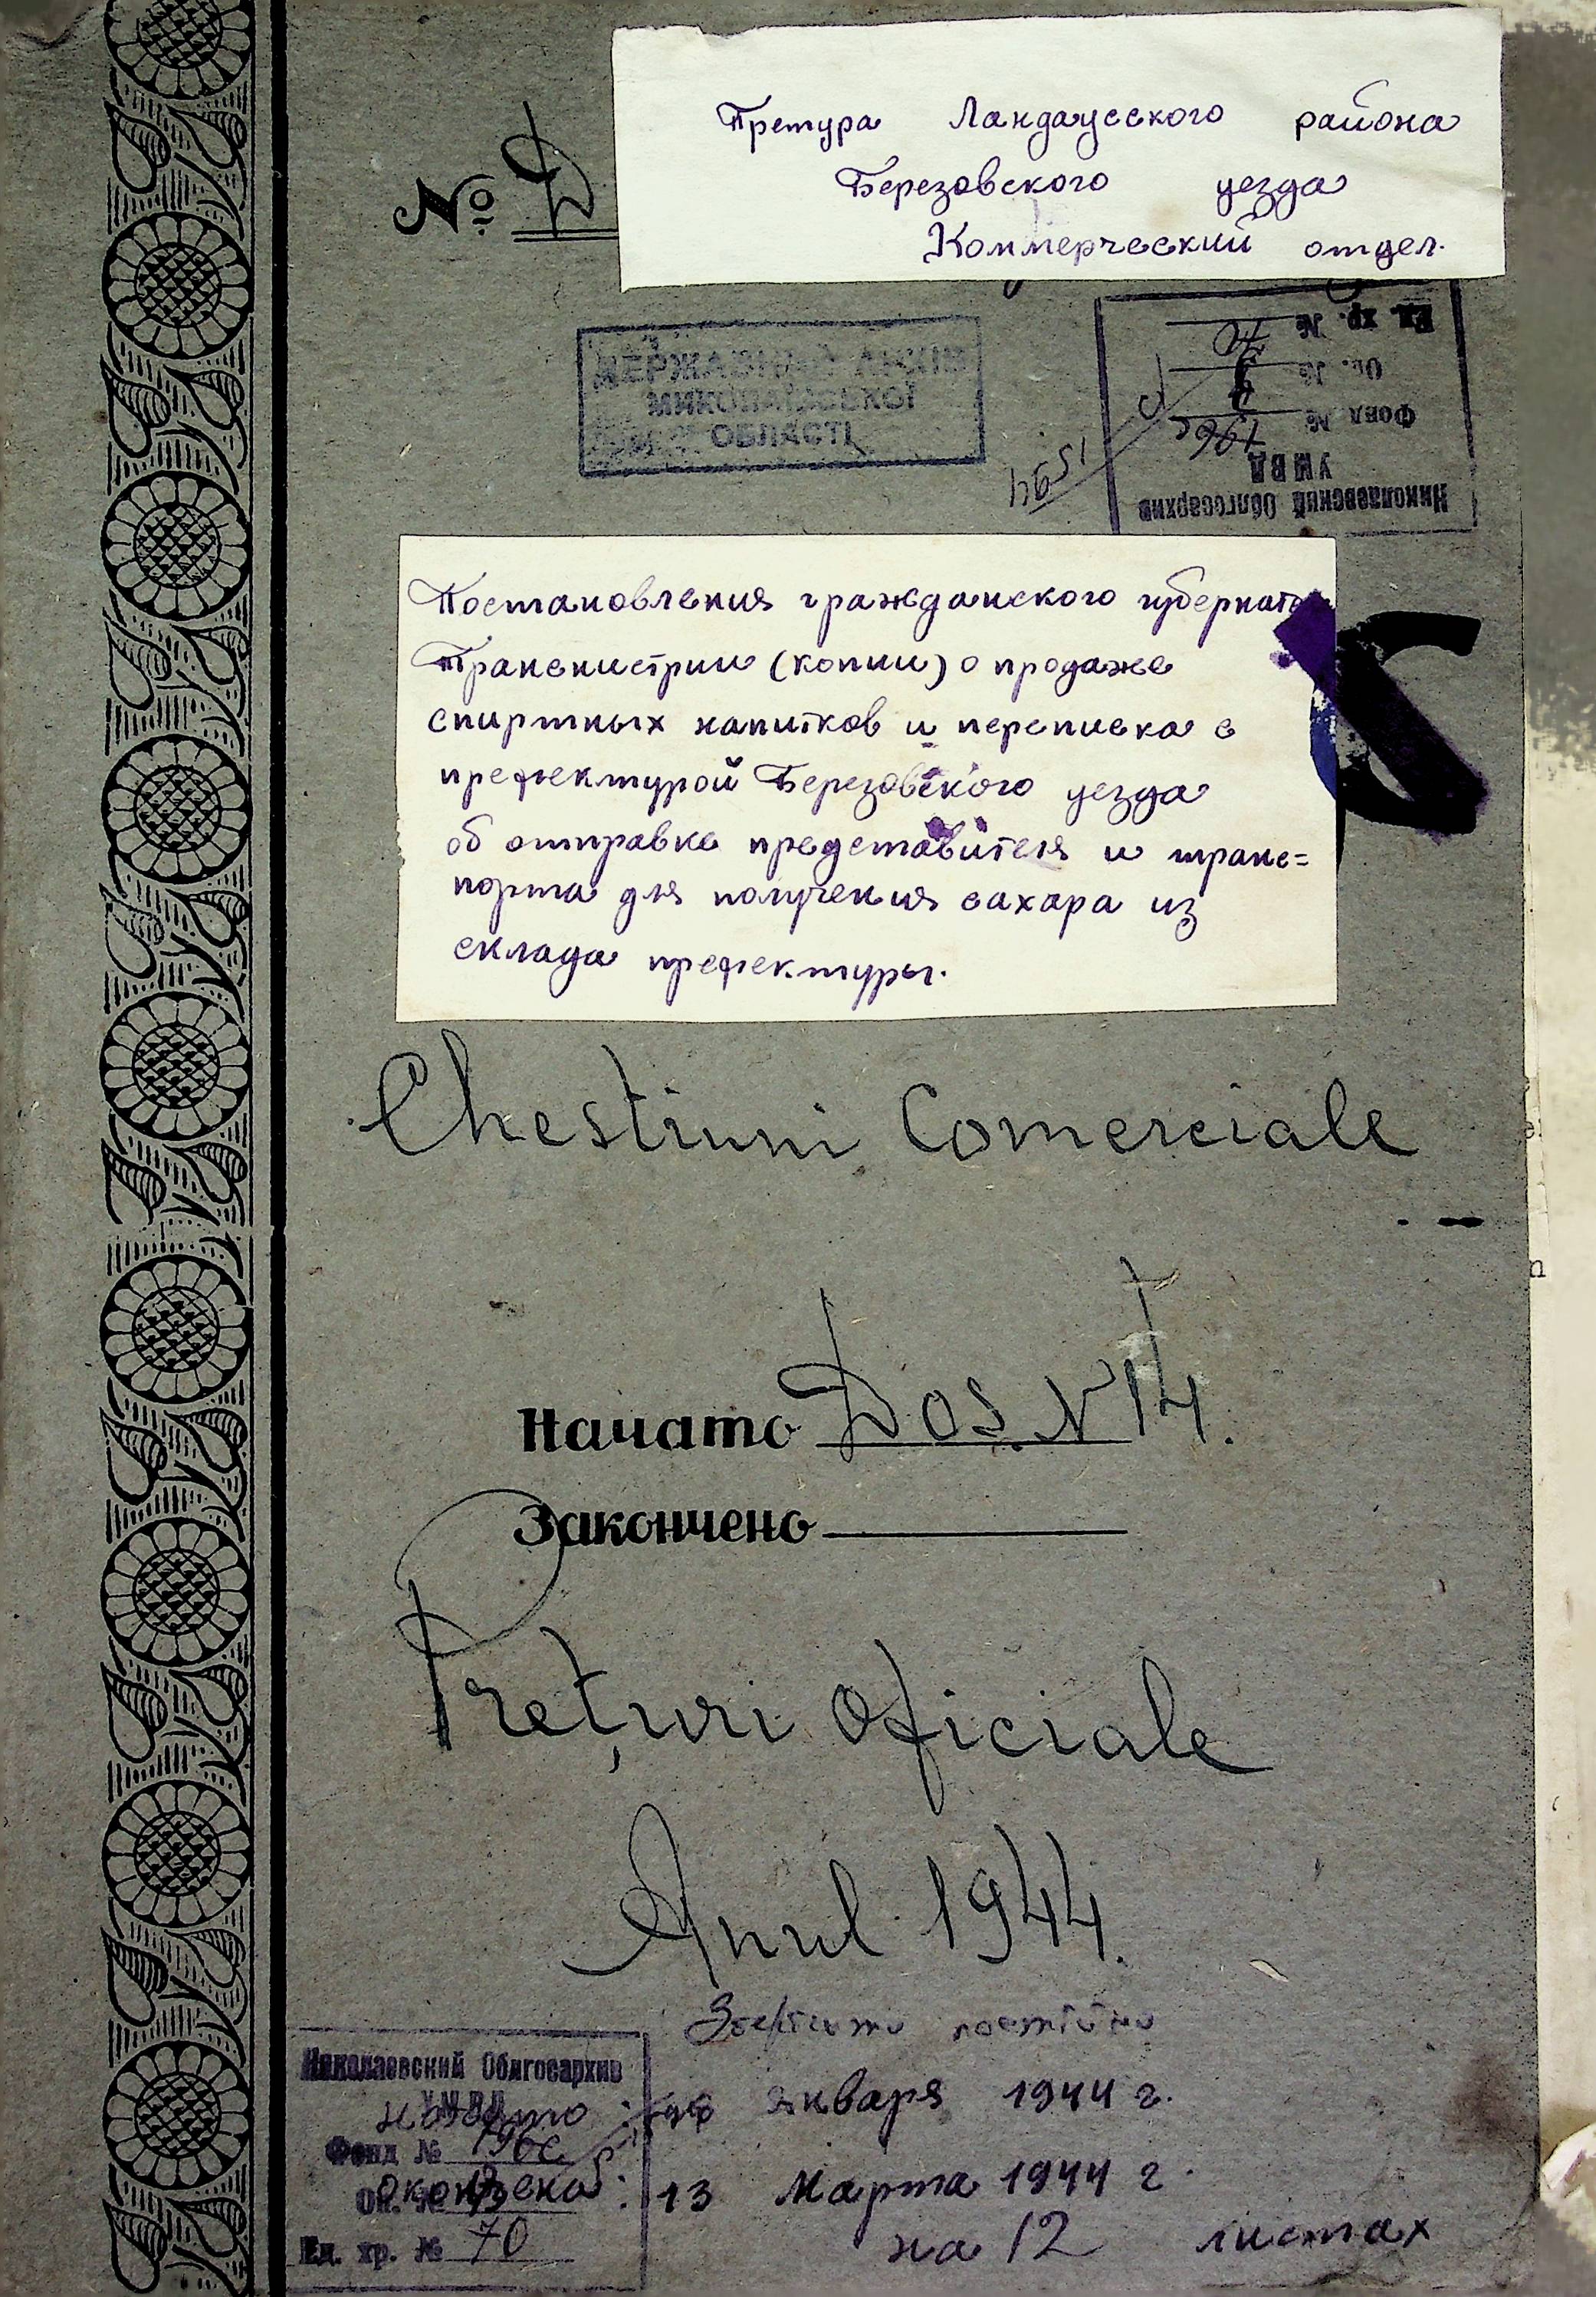 Претура Ландауского района
Березовского уезда
Коммерческий отдел.
№
ДЕРЖАВНИЙ АРХІВ
МИКОЛАЇВСЬКОЇ
ОБЛАСТІ
Николаевский Облгосархив
УМВД
Фонд №
Оп. №
Ед. хр. № 70
Постановления гражданского губернато
Транснистрии (копии) о продаже
спиртных напитков и переписка с
префектурой Березовского уезда
об отправке представителя и транс=
порта для получения сахара из
склада префектуры.
Chestiuni Comerciale
Начато Dos. N 14.
Закончено
Prețuri Oficiale
Anul 1944.
января 1944 г.
Николаевский Облгосархив
УМВД
начато:
Фонд № 196с
окончено: 13 марта 1944 г.
Оп. №
Ед. хр. № 70
на 12 листах